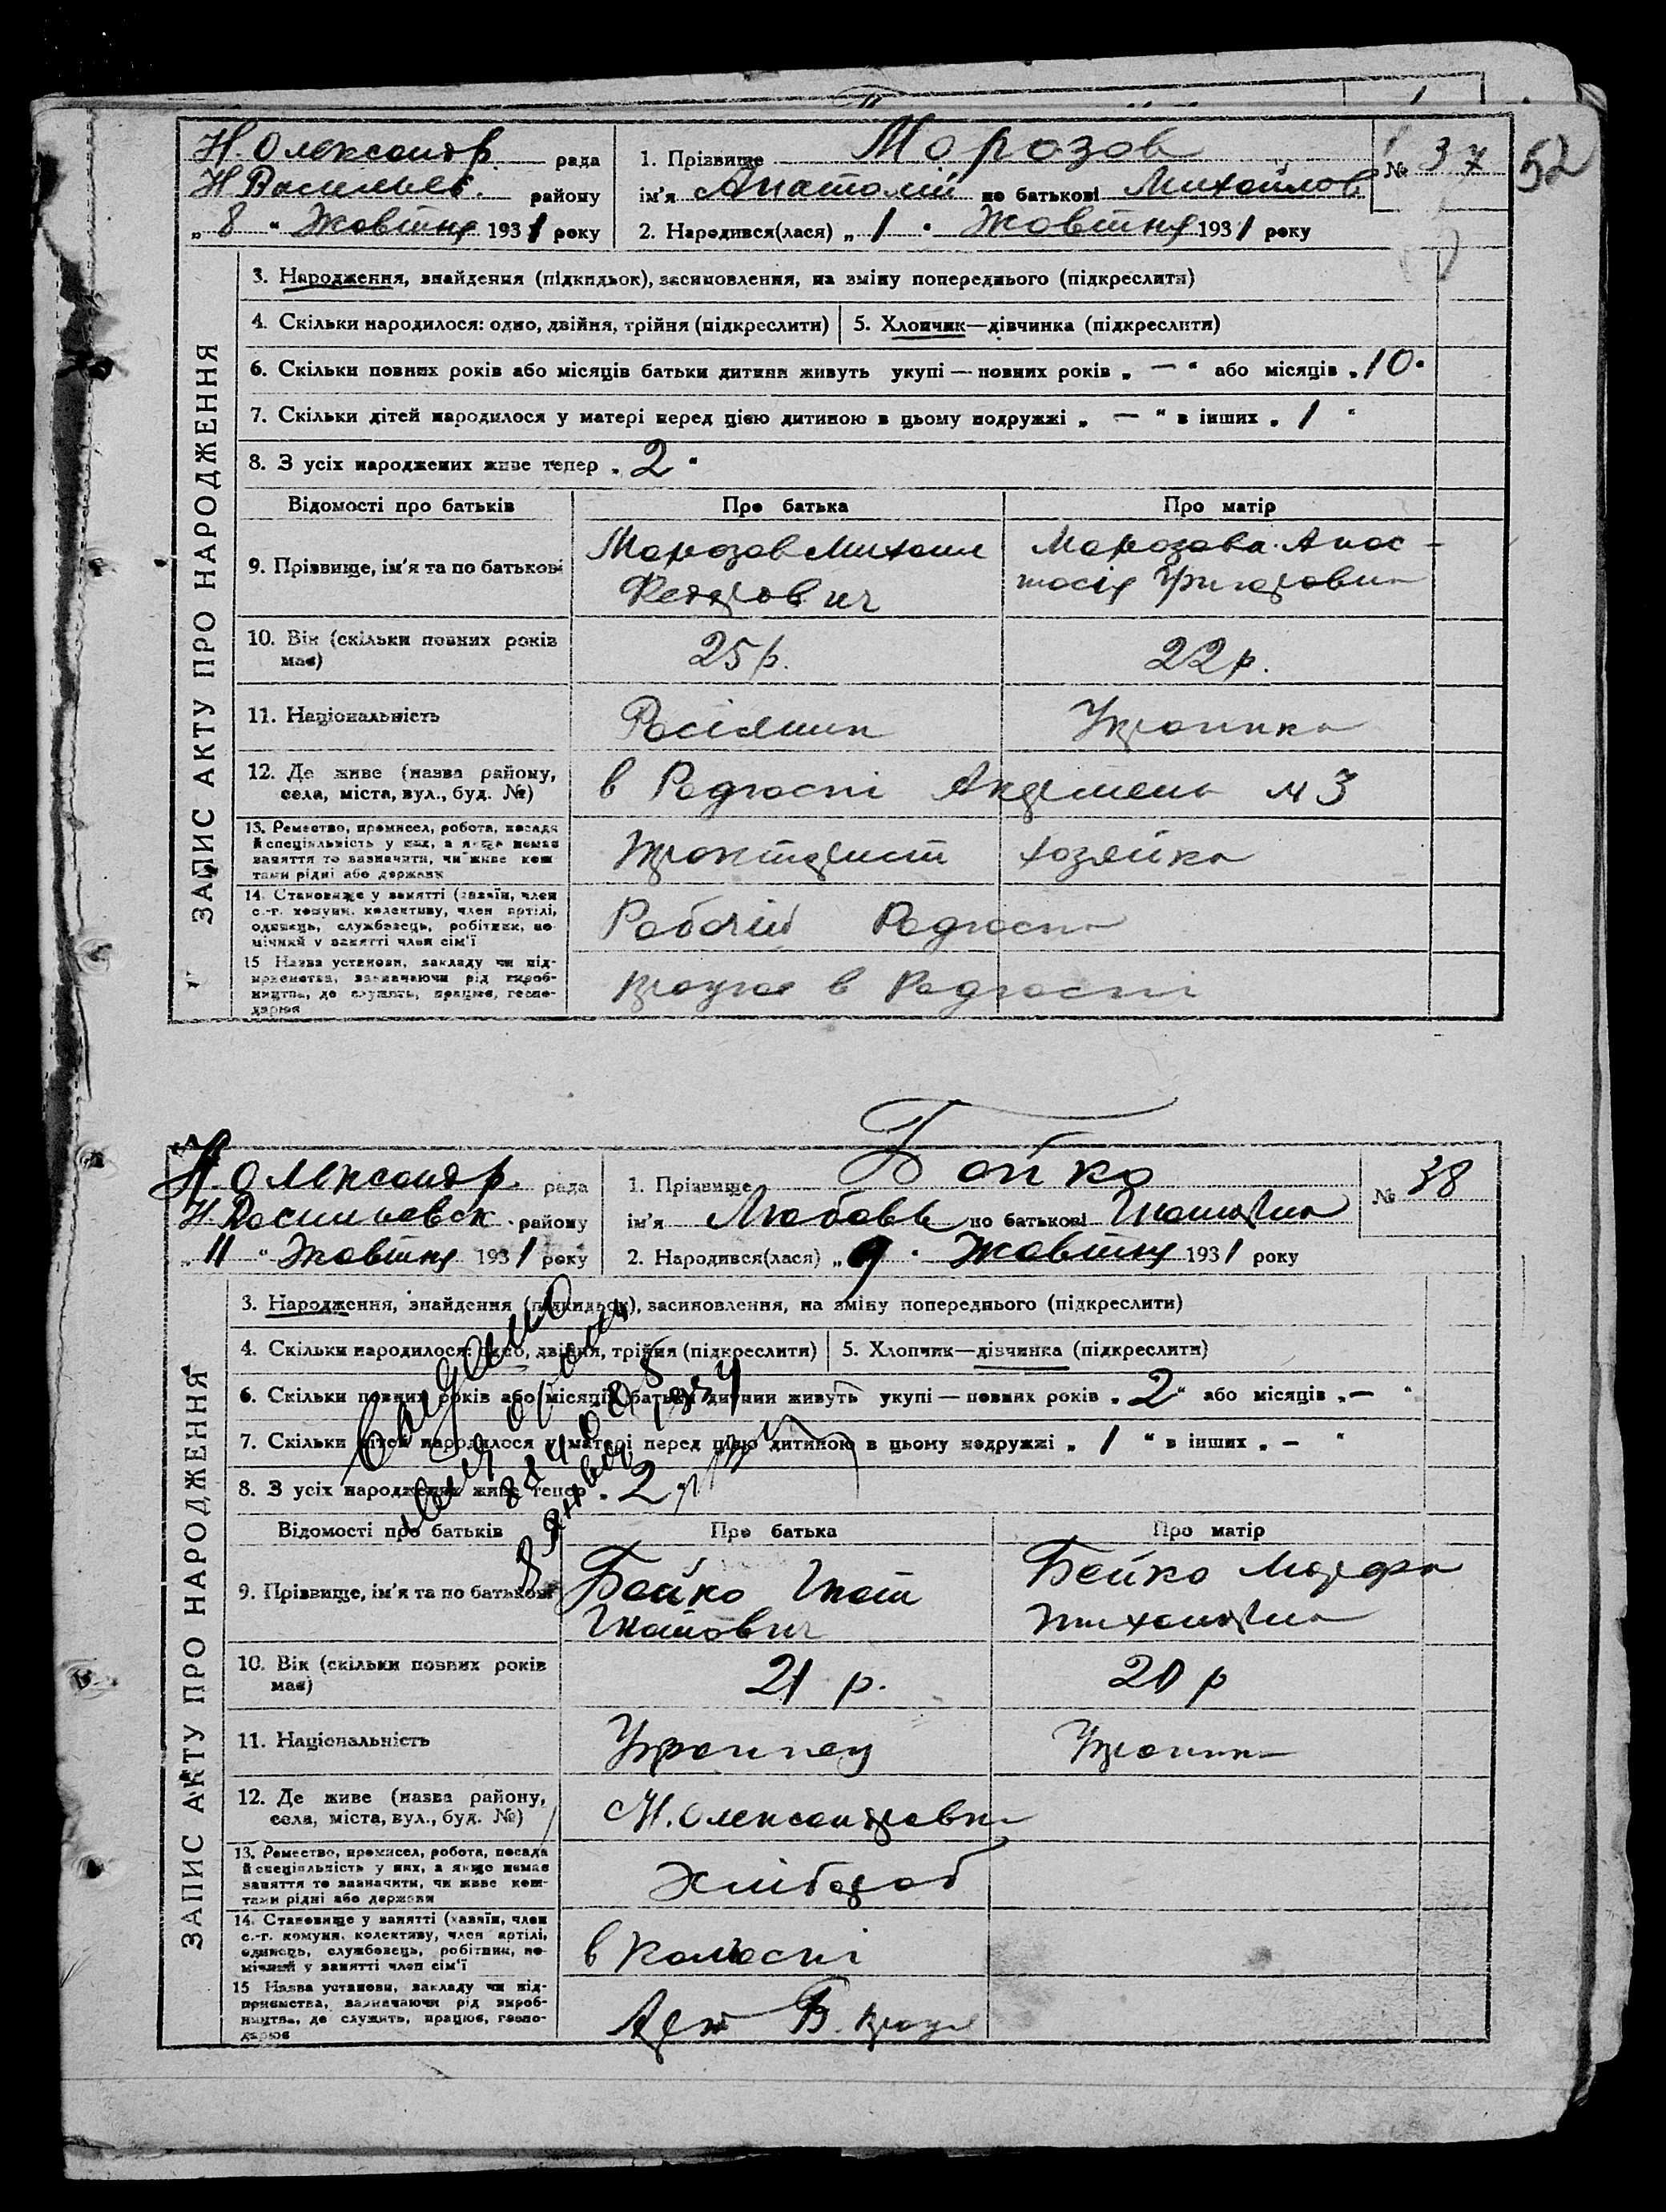 Н. Олександр. рада
Н Васильев. району
„ 8 “ Жовтня 1931 року
1. Прізвище Морозов
ім'я Анатолій по батькові Михайлов
2. Народився(лася) „ 1 “ Жовтня 1931 року
№ 37
52
ЗАПИС АКТУ ПРО НАРОДЖЕННЯ
3. Народження, знайдення (підкидьок), засиновлення, на зміну попереднього (підкреслити)
4. Скільки народилося: одно, двійня, трійня (підкреслити) 5. Хлопчик—дівчинка (підкреслити)
6. Скільки повних років або місяців батьки дитини живуть укупі — повних років „ — “ або місяців „ 10 “
7. Скільки дітей народилося у матері перед цією дитиною в цьому подружжі „ — “ в інших „ 1 “
8. З усіх народжених живе тепер „ 2 “
Відомості про батьків Про батька Про матір
9. Прізвище, ім'я та по батькові
Морозов Михаил
Федорович
Морозова Анас-
тасія Григоровна
10. Вік (скільки повних років має)
25 р. 22 р.
11. Національність Росіянин Українка
12. Де живе (назва району,
села, міста, вул., буд. №)
в Радгоспі м 3
13. Ремество, промисел, робота, посада
й спеціяльність у них, а якщо немає
заняття то зазначити, чи живе кош-
тами рідні або держави
Трактарист хозяйка
14. Становище у занятті (хазяїн, член
с.-г. комуни, колективу, член артілі,
одинець, службовець, робітник, по-
мічний у занятті член сім'ї
Рабочій Радгоспа
15 Назва установи, закладу чи під-
приємства, зазначаючи рід вироб-
ництва, де служить, працює, госпо-
дарює
працює в Радгоспі
Н. Олександр. рада
Н Василовск. району
„ 11 “ Жовтня 1931 року
1. Прізвище Бойко
ім'я Любовь по батькові Гнатовна
2. Народився(лася) „ 9 “ Жовтня 1931 року
№ 38
ЗАПИС АКТУ ПРО НАРОДЖЕННЯ
3. Народження, знайдення (підкидьок), засиновлення, на зміну попереднього (підкреслити)
4. Скільки народилося: одно, двійня, трійня (підкреслити) 5. Хлопчик—дівчинка (підкреслити)
6. Скільки повних років або місяців батьки дитини живуть укупі — повних років „ 2 “ або місяців „ — “
7. Скільки дітей народилося у матері перед цією дитиною в цьому подружжі „ 1 “ в інших „ — “
8. З усіх народжених живе тепер „ 2 “
Відомості про батьків Про батька Про матір
9. Прізвище, ім'я та по батькові
Бойко Гнат
Гнатович
Бойко Марфа
10. Вік (скільки повних років
має)
21 р. 20 р
11. Національність Українец Українка
12. Де живе (назва району,
села, міста, вул., буд. №)
Н. Олександровка
13. Ремество, промисел, робота, посада
й спеціяльність у них, а якщо немає
заняття то зазначити, чи живе кош-
тами рідні або держави
Хлібороб
14. Становище у занятті (хазяїн, член
с.-г. комуни, колективу, член артілі,
одинець, службовець, робітник, по-
мічний у занятті член сім'ї
в колгоспі
15 Назва установи, закладу чи під-
приємства, зазначаючи рід вироб-
ництва, де служить, працює, госпо-
дарює